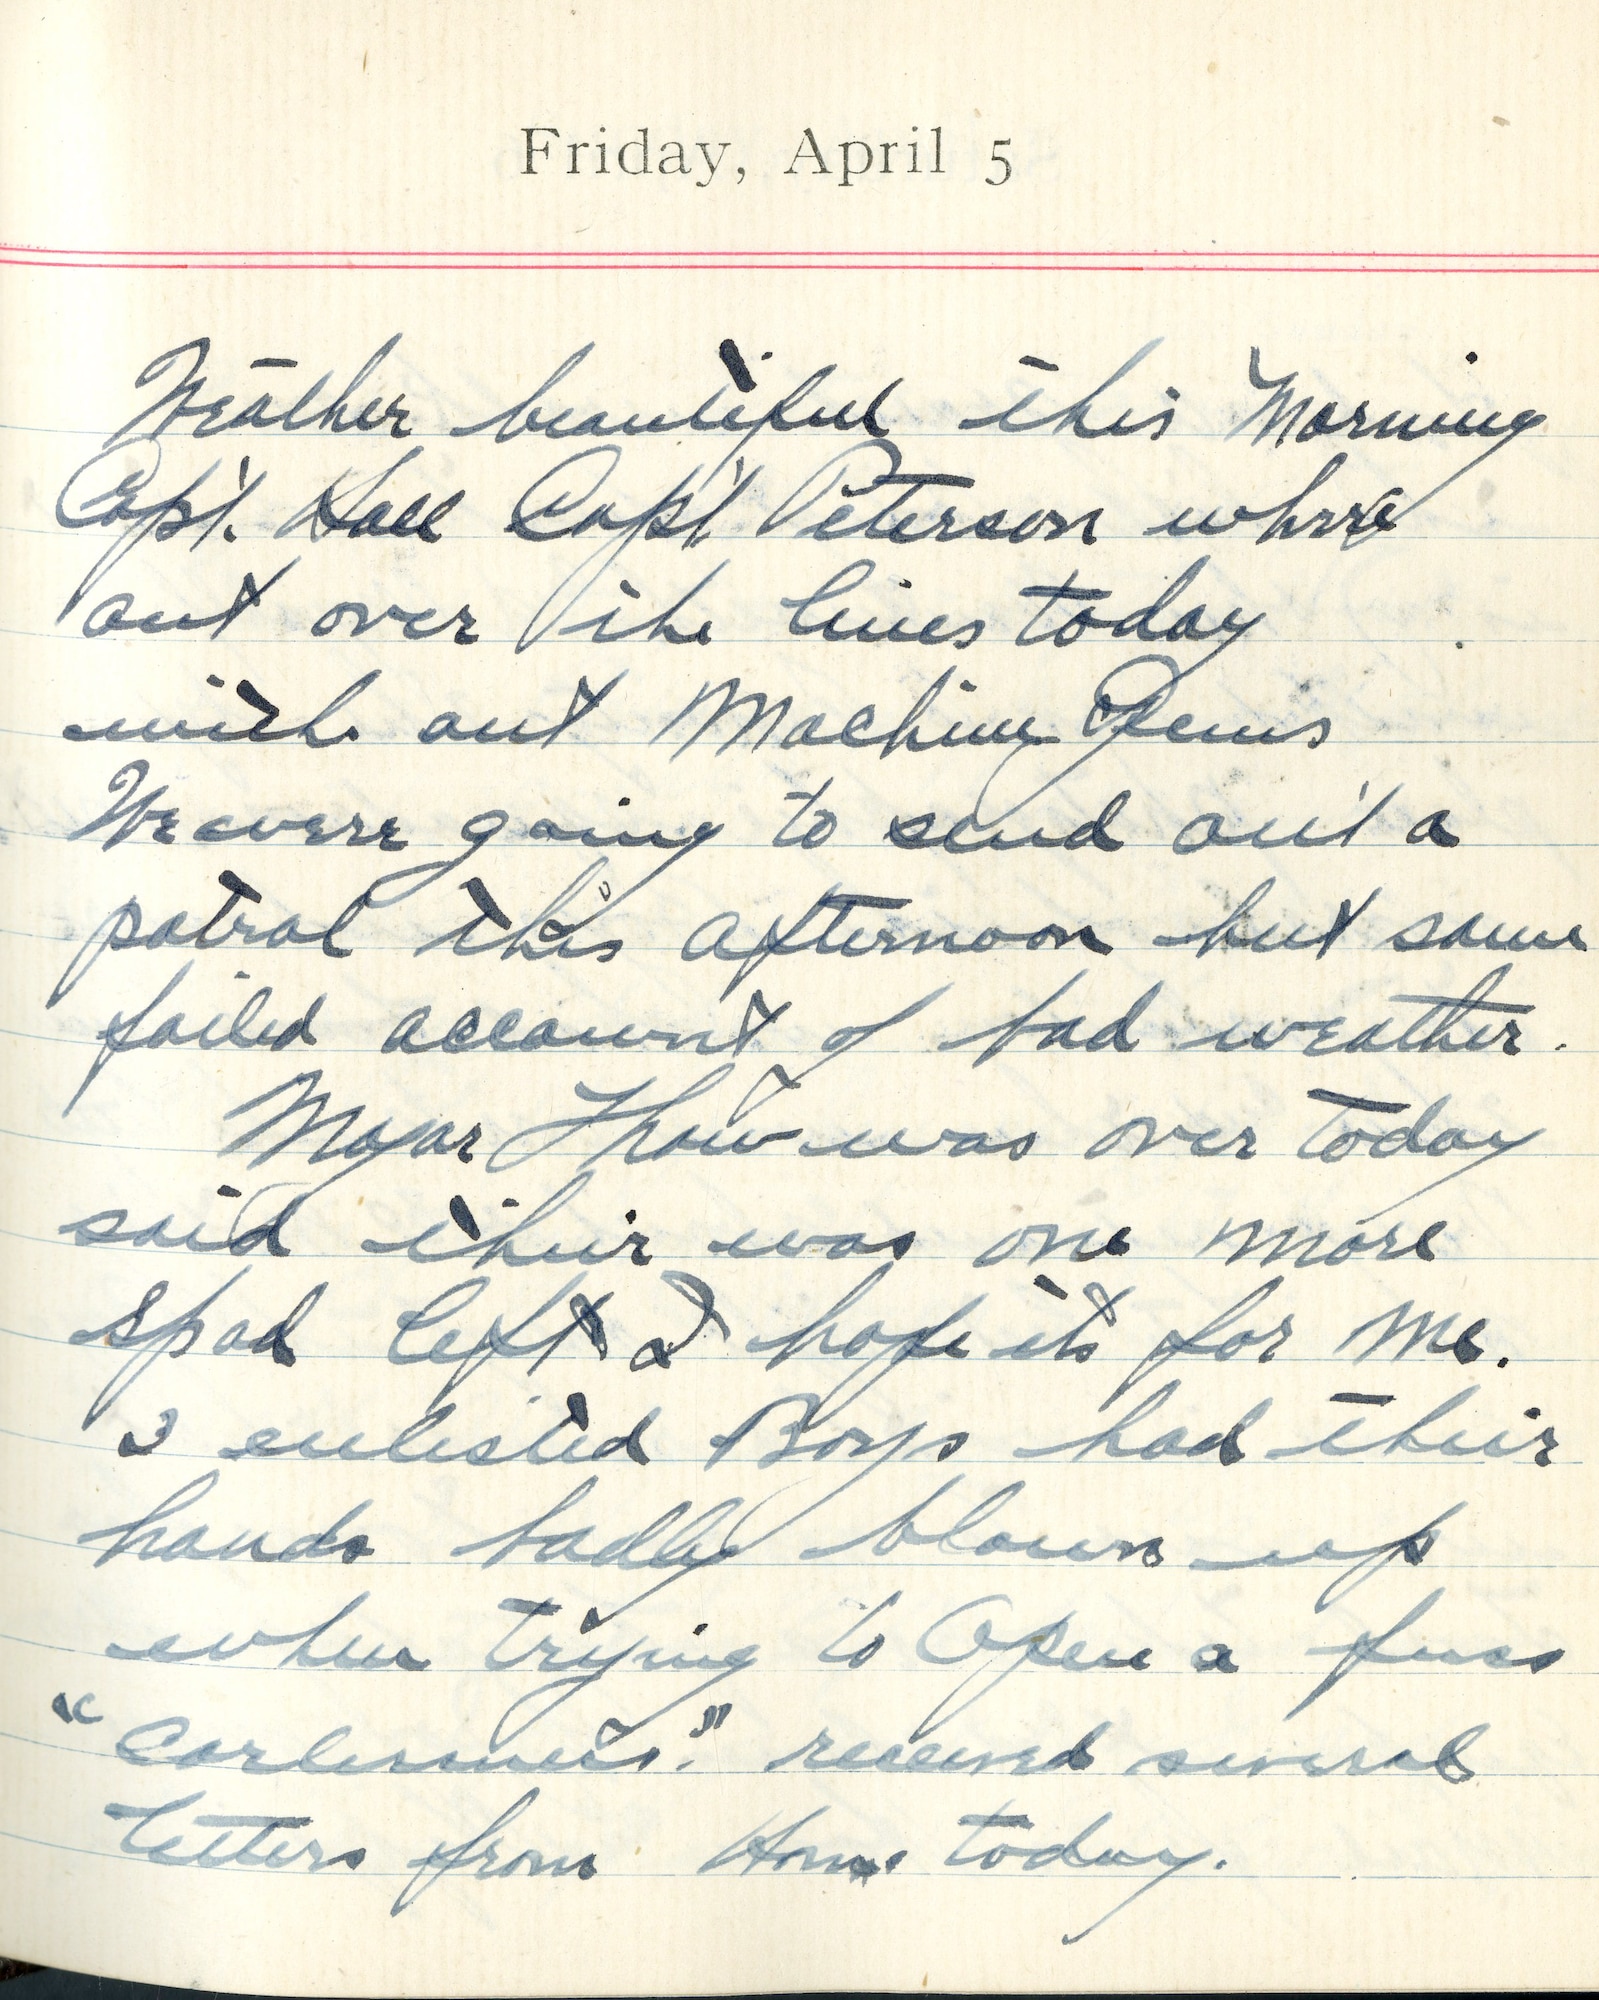 Friday, April 5
Weather beautiful this Morning
Capt. Hall Capt Peterson where
out over the lines today
with out Machine Guns
We were going to send out a
patrol this afternoon but same
failed account of bad weather.
Major Thaw was over today
said their was one more
Spad left I hope its for Me.
3 enlisted Boys had their
hands badly blown up
when trying to Open a fuss
"Carlessness." received several
letters from Home today.